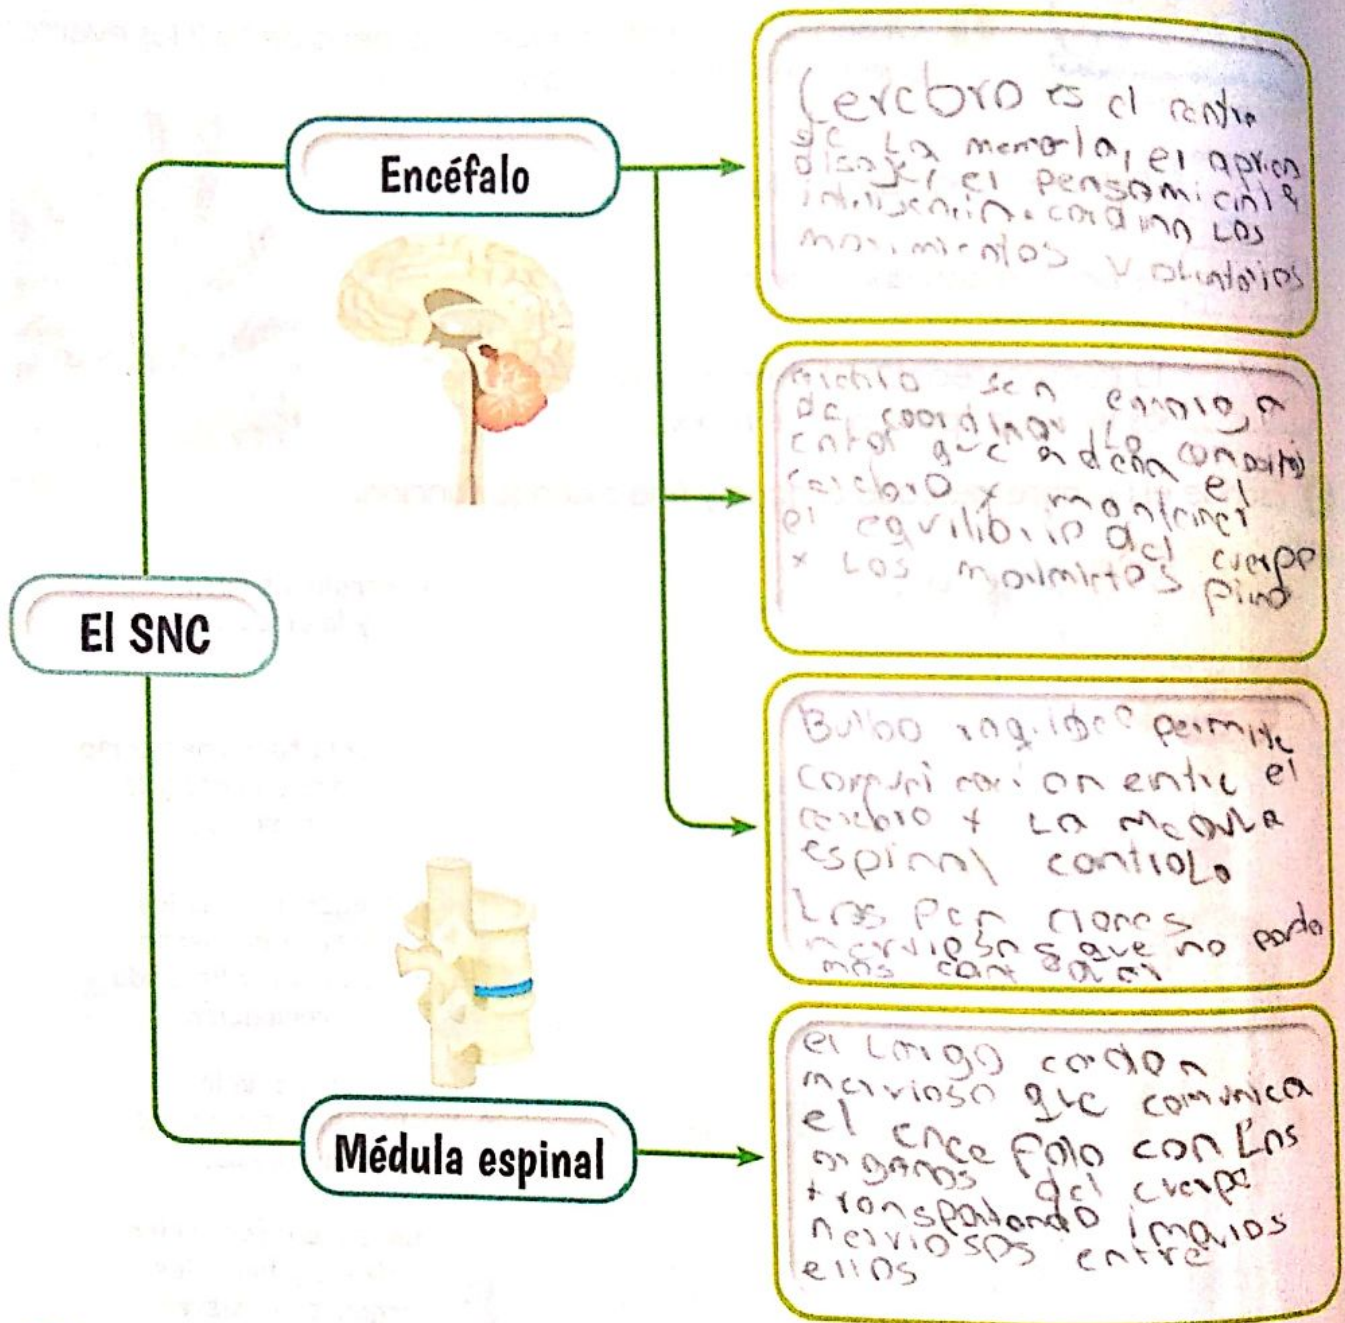 Encéfalo
El SNC
Médula espinal
Cerebro es el centro
de La memoria, el apren
disaje, el pensamiento
inteligencia. cordina Los
movimientos voluntarios
se encarga
de coordinar La
que ordena el
cerebro y mantener
el equilibrio del cuerpo
y Los
Bulbo permite
comunicacion entre el
cerebro y La medula
espinal controla
Las
nerviosas que no
mas
el Largo cordon
nervioso que comunica
el encefalo con Los
organos del cuerpo
transportando
nerviosos entre
ellos